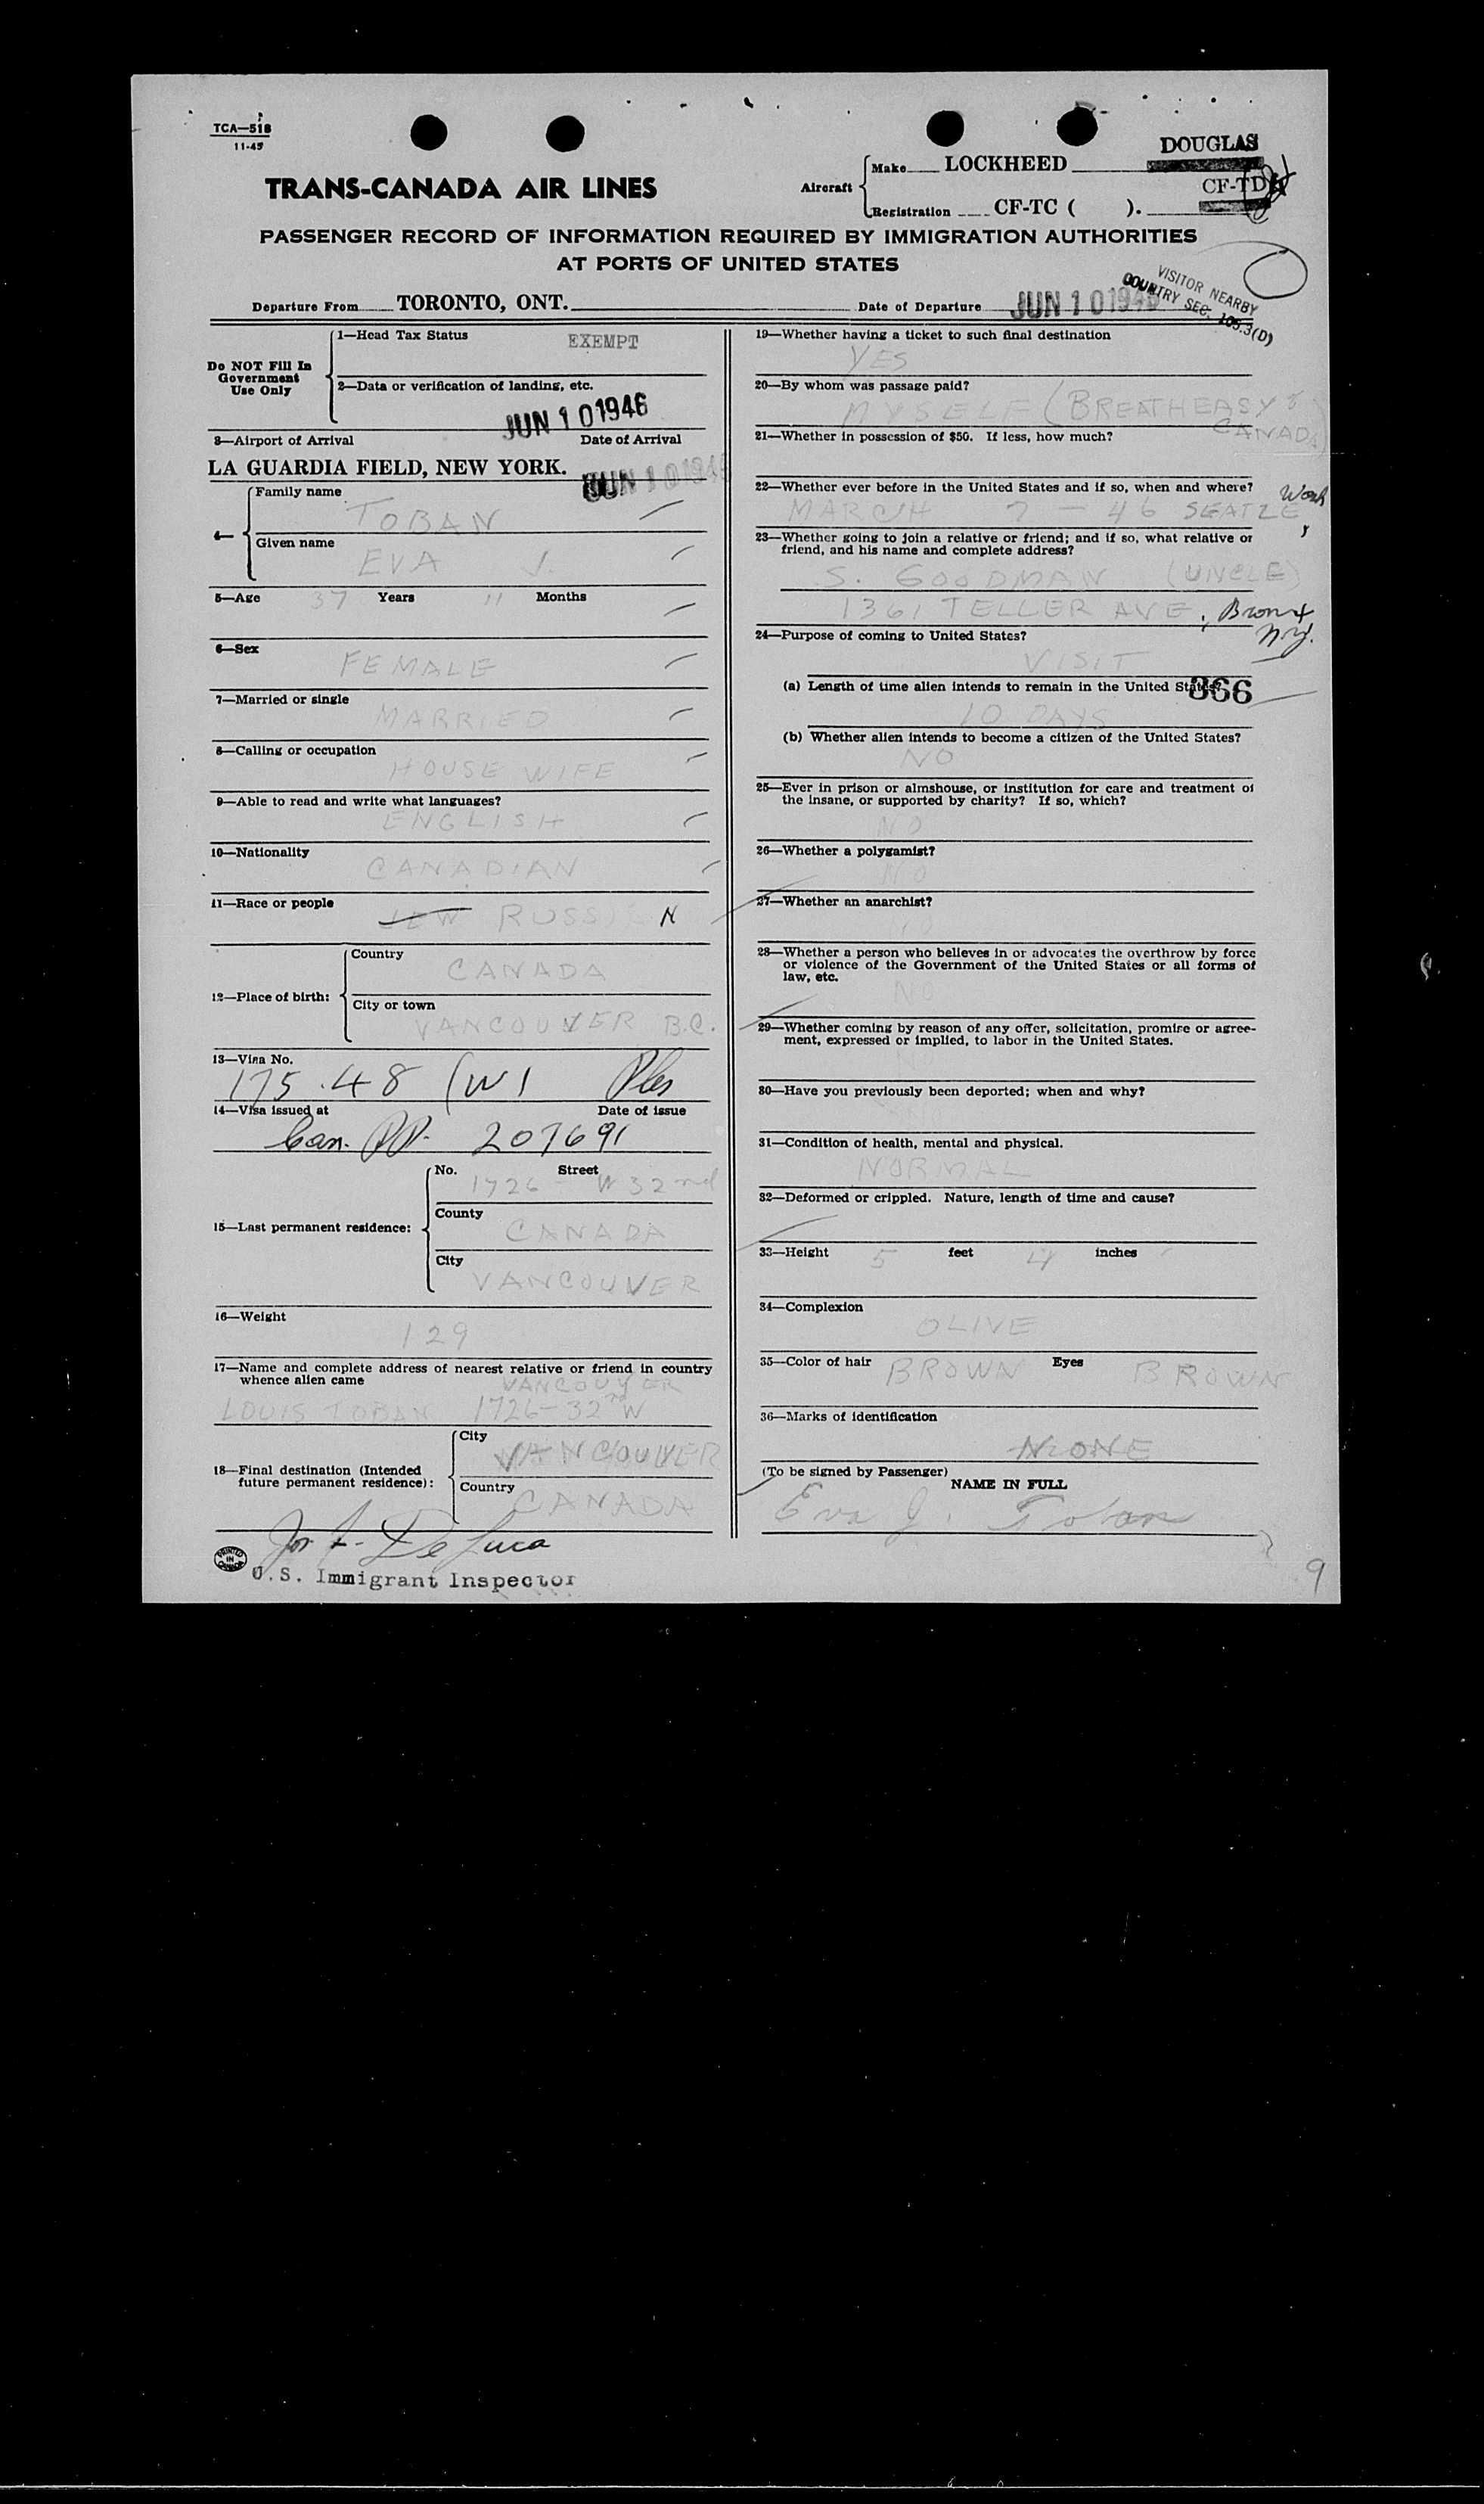 TCA—518
11-45
DOUGLAS
Aircraft Make LOCKHEED
CF-TD
Registration CF-TC ( ).
TRANS-CANADA AIR LINES
PASSENGER RECORD OF INFORMATION REQUIRED BY IMMIGRATION AUTHORITIES
AT PORTS OF UNITED STATES
VISITOR NEARBY
COUNTRY SEC. 165.3(D)
Departure From TORONTO, ONT. Date of Departure JUN 10 1946
Do NOT Fill In
Government
Use Only
1—Head Tax Status EXEMPT
2—Data or verification of landing, etc.
JUN 10 1946
3—Airport of Arrival Date of Arrival
LA GUARDIA FIELD, NEW YORK. JUN 10 1946
4— Family name
TOBAN
Given name
EVA J.
5—Age 37 Years 11 Months
6—Sex
FEMALE
7—Married or single
MARRIED
8—Calling or occupation
HOUSE WIFE
9—Able to read and write what languages?
ENGLISH
10—Nationality
CANADIAN
11—Race or people
JEW RUSSIAN
12—Place of birth:
Country
CANADA
City or town
VANCOUVER B.C.
13—Visa No.
175.48 (W)
14—Visa issued at Date of issue
Can. PP. 207691
15—Last permanent residence:
No. Street
1726 - W 32nd
County
CANADA
City
VANCOUVER
16—Weight
129
17—Name and complete address of nearest relative or friend in country
whence alien came VANCOUVER
LOUIS TOBAN 1726-32nd W
18—Final destination (Intended
future permanent residence):
City
VANCOUVER
Country
CANADA
De Luca
PRINTED IN CANADA
U.S. Immigrant Inspector
19—Whether having a ticket to such final destination
YES
20—By whom was passage paid?
MYSELF (BREATHEASY
CANADA)
21—Whether in possession of $50. If less, how much?
22—Whether ever before in the United States and if so, when and where?
MARCH 7 - 46 SEATLE Wash
23—Whether going to join a relative or friend; and if so, what relative or
friend, and his name and complete address?
S. GOODMAN (UNCLE)
1361 TELLER AVE, Bronx
N.Y.
24—Purpose of coming to United States?
VISIT
(a) Length of time alien intends to remain in the United States?
366
10 DAYS
(b) Whether alien intends to become a citizen of the United States?
NO
25—Ever in prison or almshouse, or institution for care and treatment of
the insane, or supported by charity? If so, which?
NO
26—Whether a polygamist?
NO
27—Whether an anarchist?
NO
28—Whether a person who believes in or advocates the overthrow by force
or violence of the Government of the United States or all forms of
law, etc.
NO
29—Whether coming by reason of any offer, solicitation, promise or agree-
ment, expressed or implied, to labor in the United States.
30—Have you previously been deported; when and why?
31—Condition of health, mental and physical.
NORMAL
32—Deformed or crippled. Nature, length of time and cause?
33—Height 5 feet 4 inches
34—Complexion
OLIVE
35—Color of hair BROWN Eyes BROWN
36—Marks of identification
NONE
(To be signed by Passenger)
NAME IN FULL
Eva J. Toban
9